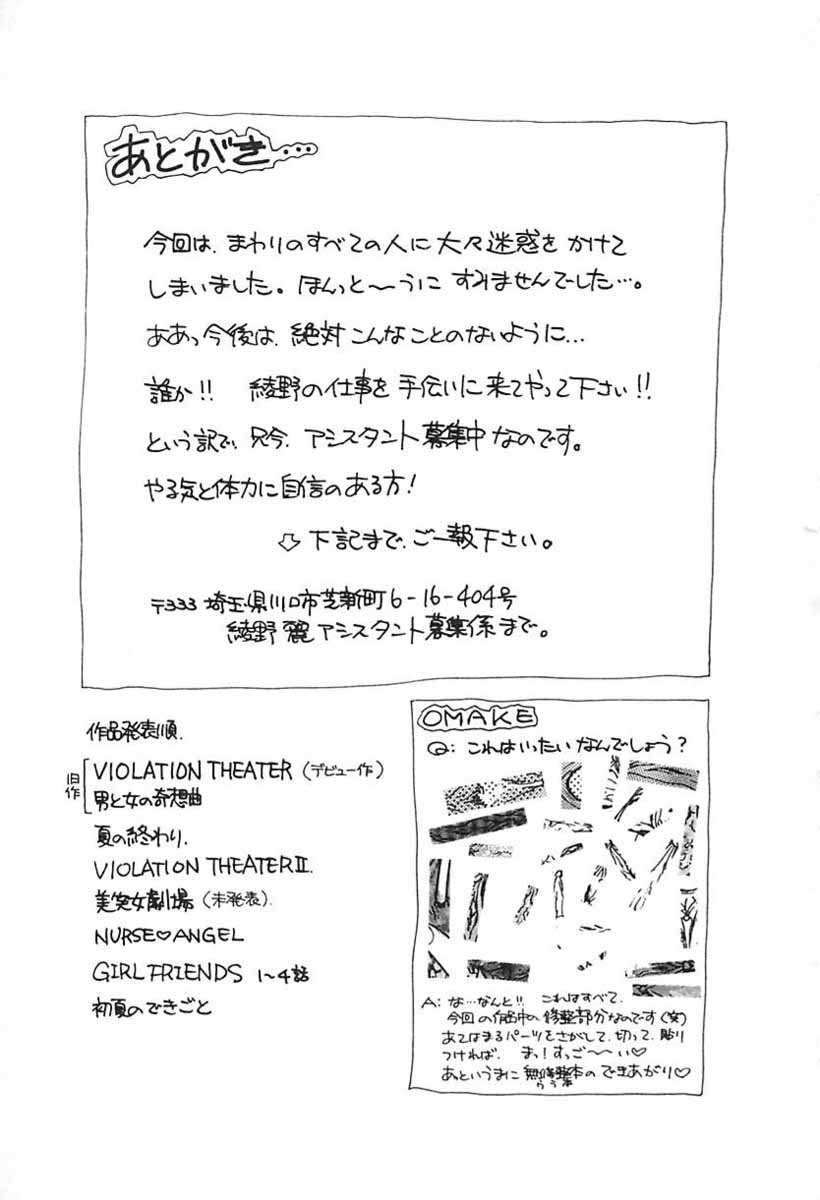 あとがき…
今回は、まわりのすべての人に大々迷惑をかけて
しまいました。ほんっと〜うにすみませんでした…。
ああっ今後は、絶対こんなことのないように…
誰か!! 綾野の仕事を手伝いに来てやって下さい!!
という訳で、只今、アシスタント募集中なのです。
やる気と体力に自信のある方!
⇩下記まで、ご一報下さい。
〒333 埼玉県川口市芝新町6-16-404号
綾野 麗アシスタント募集係まで。
作品発表順.
旧作
VIOLATION THEATER(デビュー作)
男と女の奇想曲
夏の終わり.
VIOLATION THEATERⅡ.
美実女劇場(未発表).
NURSE♡ANGEL
GIRL FRIENDS 1〜4話
初夏のできごと
OMAKE
Q: これはいったいなんでしょう?
A: な…なんと!! これはすべて、
今回の作品中の修整部分なのです(笑)
あてはまるパーツをさがして、切って、貼り
つければ、まっ!すっご〜〜い♡
あっというまに無修整本のできあがり♡